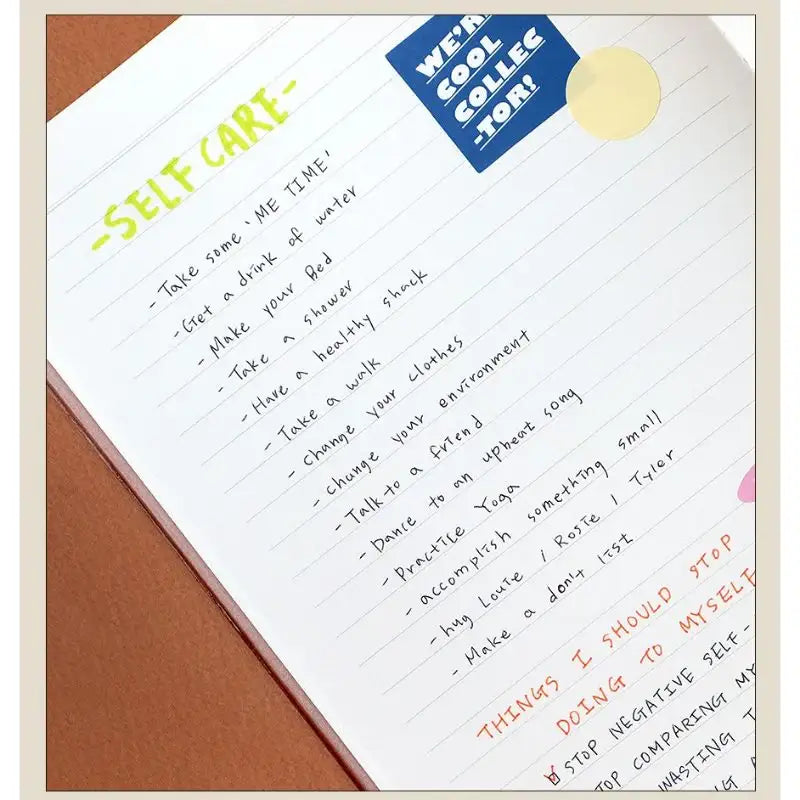 WE'RE
COOL
COLLEC
-TOR!
-SELF CARE-
- Take some 'ME TIME'
- Get a drink of water
- Make your Bed
- Take a shower
- Have a healthy shack
- Take a walk
- change your clothes
- change your environment
- Talk to a friend
- Dance to an upbeat song
- Practice Yoga
- accomplish something small
- hug Louie / Rosie / Tyler
- Make a don't list
THINGS I SHOULD STOP
DOING TO MYSELF
STOP NEGATIVE SELF-
TOP COMPARING MY
WASTING